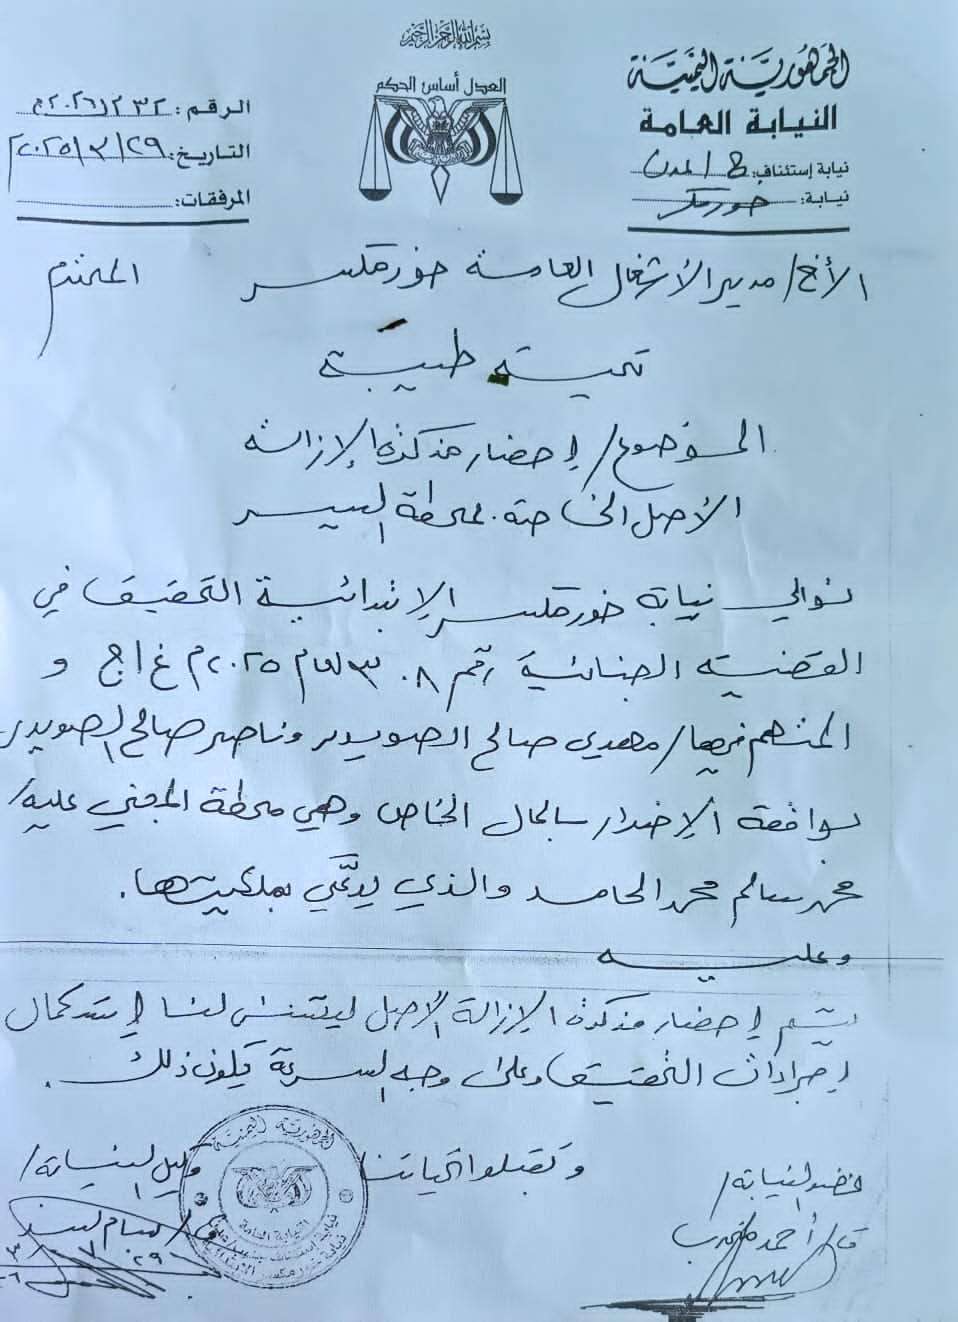 بسم الله الرحمن الرحيم
الجمهورية اليمنية
النيابة العامة
نيابة إستئناف: ج/عدن
نيابة: خورمكسر
العدل أساس الحكم
الرقم: ٢٣٢
التاريخ: ٢٩/٣/٢٠٢٥م
المرفقات:
الأخ/ مدير الأشغال العامة خورمكسر المحترم
تحية طيبة
الموضوع/ إحضار مذكرة الإزالة
الأصل الخاصة بمحطة
توالي نيابة خورمكسر الإبتدائية التحقيق في
القضية الجنائية رقم ٣٠٨ لعام ٢٠٢٥م غ/ج و
المتهم فيها/ مهدي صالح الصويدر وناصر صالح الصويدر
بواقعة الإضرار بالمال الخاص وهي محطة المجني عليه/
محمد سالم محمد الحامد والذي يدّعي بملكيتها.
وعليه
يتم إحضار مذكرة الإزالة الأصل ليتسنى لنا إستكمال
إجراءات التحقيق وعلى وجه السرعة يكون ذلك.
وتقبلوا تحياتنا
عضو النيابة/
أحمد
وكيل النيابة/
الجمهورية اليمنية
النيابة العامة